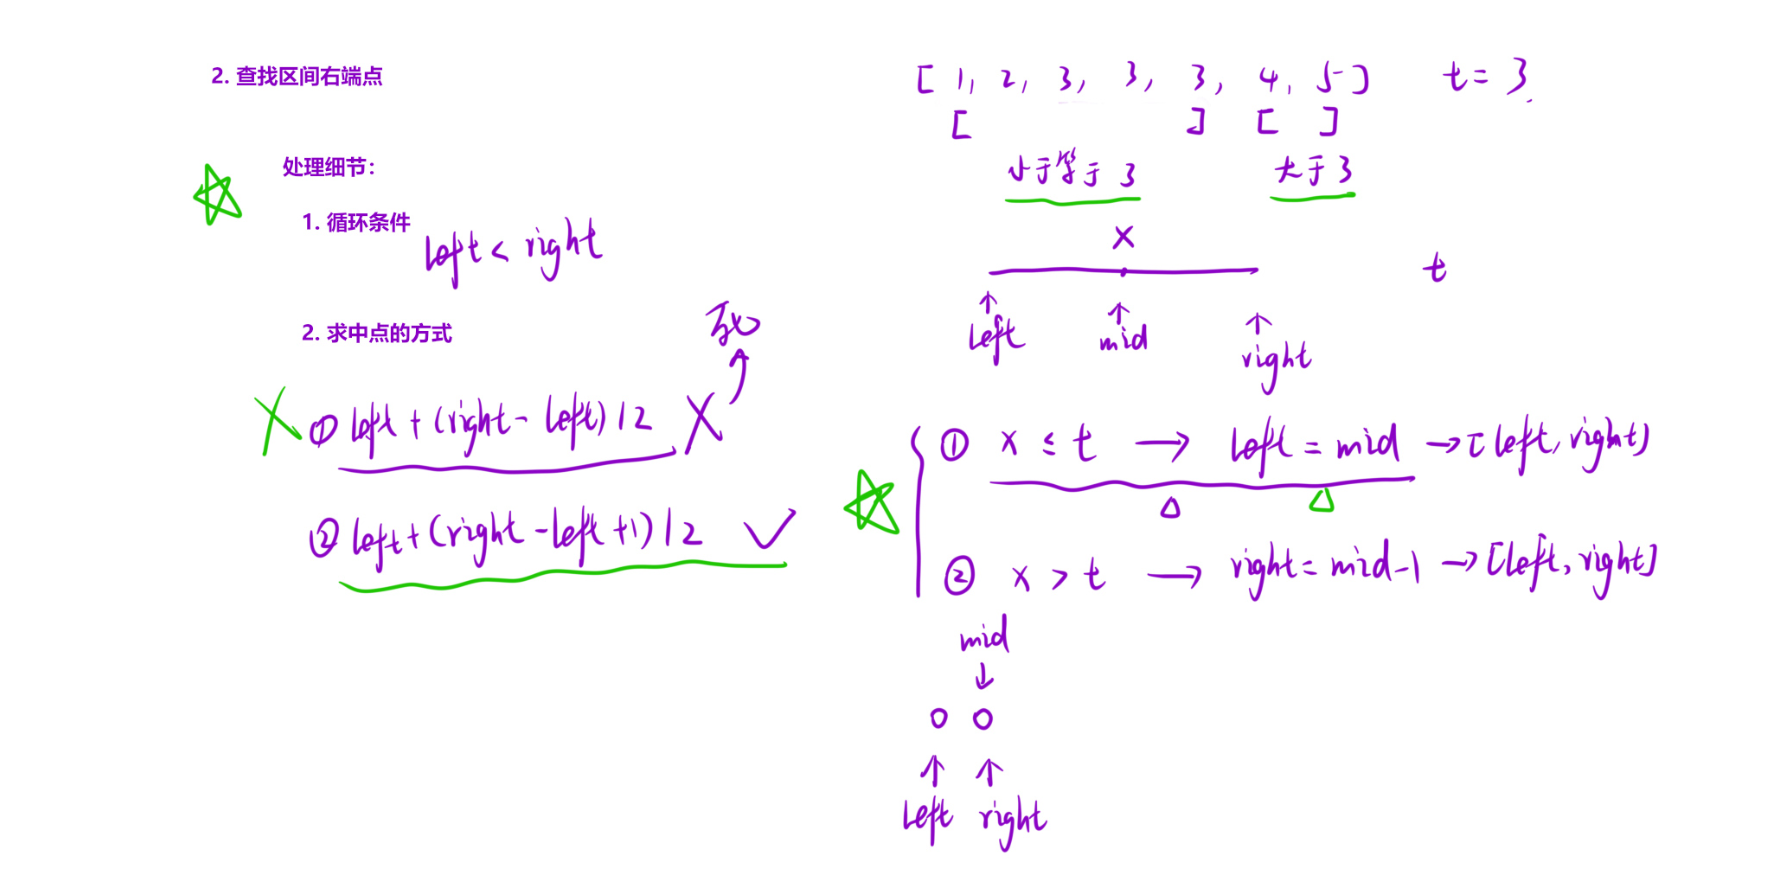 2. 查找区间右端点
处理细节：
1. 循环条件
left < right
2. 求中点的方式
死
① left + (right - left) / 2 X
② left + (right - left + 1) / 2 ✓
[ 1, 2, 3, 3, 3, 4, 5 ] t = 3.
[ ] [ ]
小于等于 3 大于 3
x
t
left mid right
① x ≤ t → left = mid → [left, right]
② x > t → right = mid - 1 → [left, right]
mid
left right